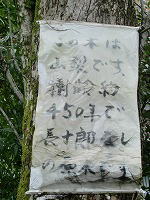 この木は
山梨です。
樹齢約
450年で
長十郎梨し
の原木です